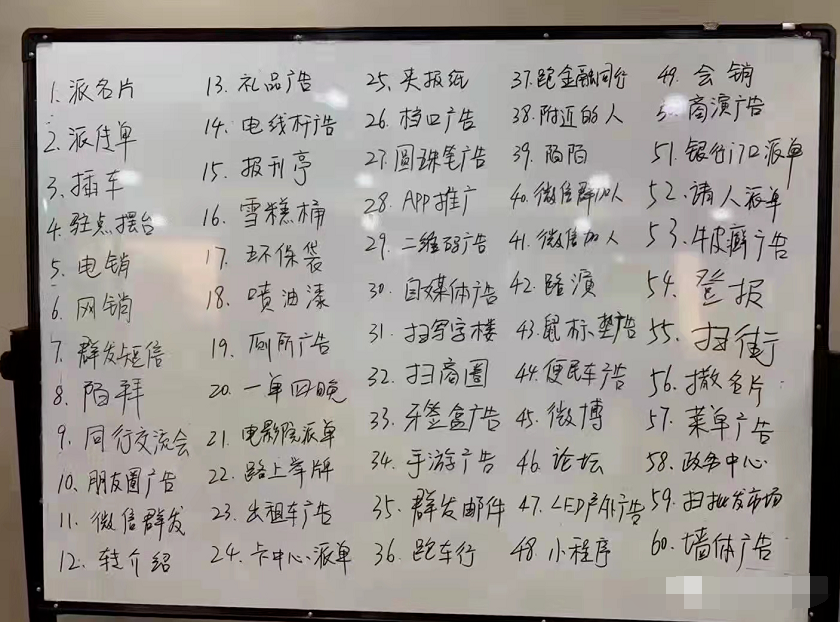 1. 派名片
2. 派传单
3. 插车
4. 驻点摆台
5. 电销
6. 网销
7. 群发短信
8. 陌拜
9. 同行交流会
10. 朋友圈广告
11. 微信群发
12. 转介绍
13. 礼品广告
14. 电线杆广告
15. 报刊亭
16. 雪糕桶
17. 环保袋
18. 喷油漆
19. 厕所广告
20. 一单四晚
21. 电影院派单
22. 路上举牌
23. 出租车广告
24. 卡中心派单
25. 夹报纸
26. 档口广告
27. 圆珠笔广告
28. APP推广
29. 二维码广告
30. 自媒体广告
31. 扫写字楼
32. 扫商圈
33. 牙签盒广告
34. 手游广告
35. 群发邮件
36. 跑车行
37. 跑金融同行
38. 附近的人
39. 陌陌
40. 微信群加人
41. 微信加人
42. 路演
43. 鼠标垫广告
44. 便民车广告
45. 微博
46. 论坛
47. LED户外广告
48. 小程序
49. 会销
5 商演广告
51. 银行门口派单
52. 请人派单
53. 牛皮癣广告
54. 登报
55. 扫街
56. 撒名片
57. 菜单广告
58. 政务中心
59. 扫批发市场
60. 墙体广告